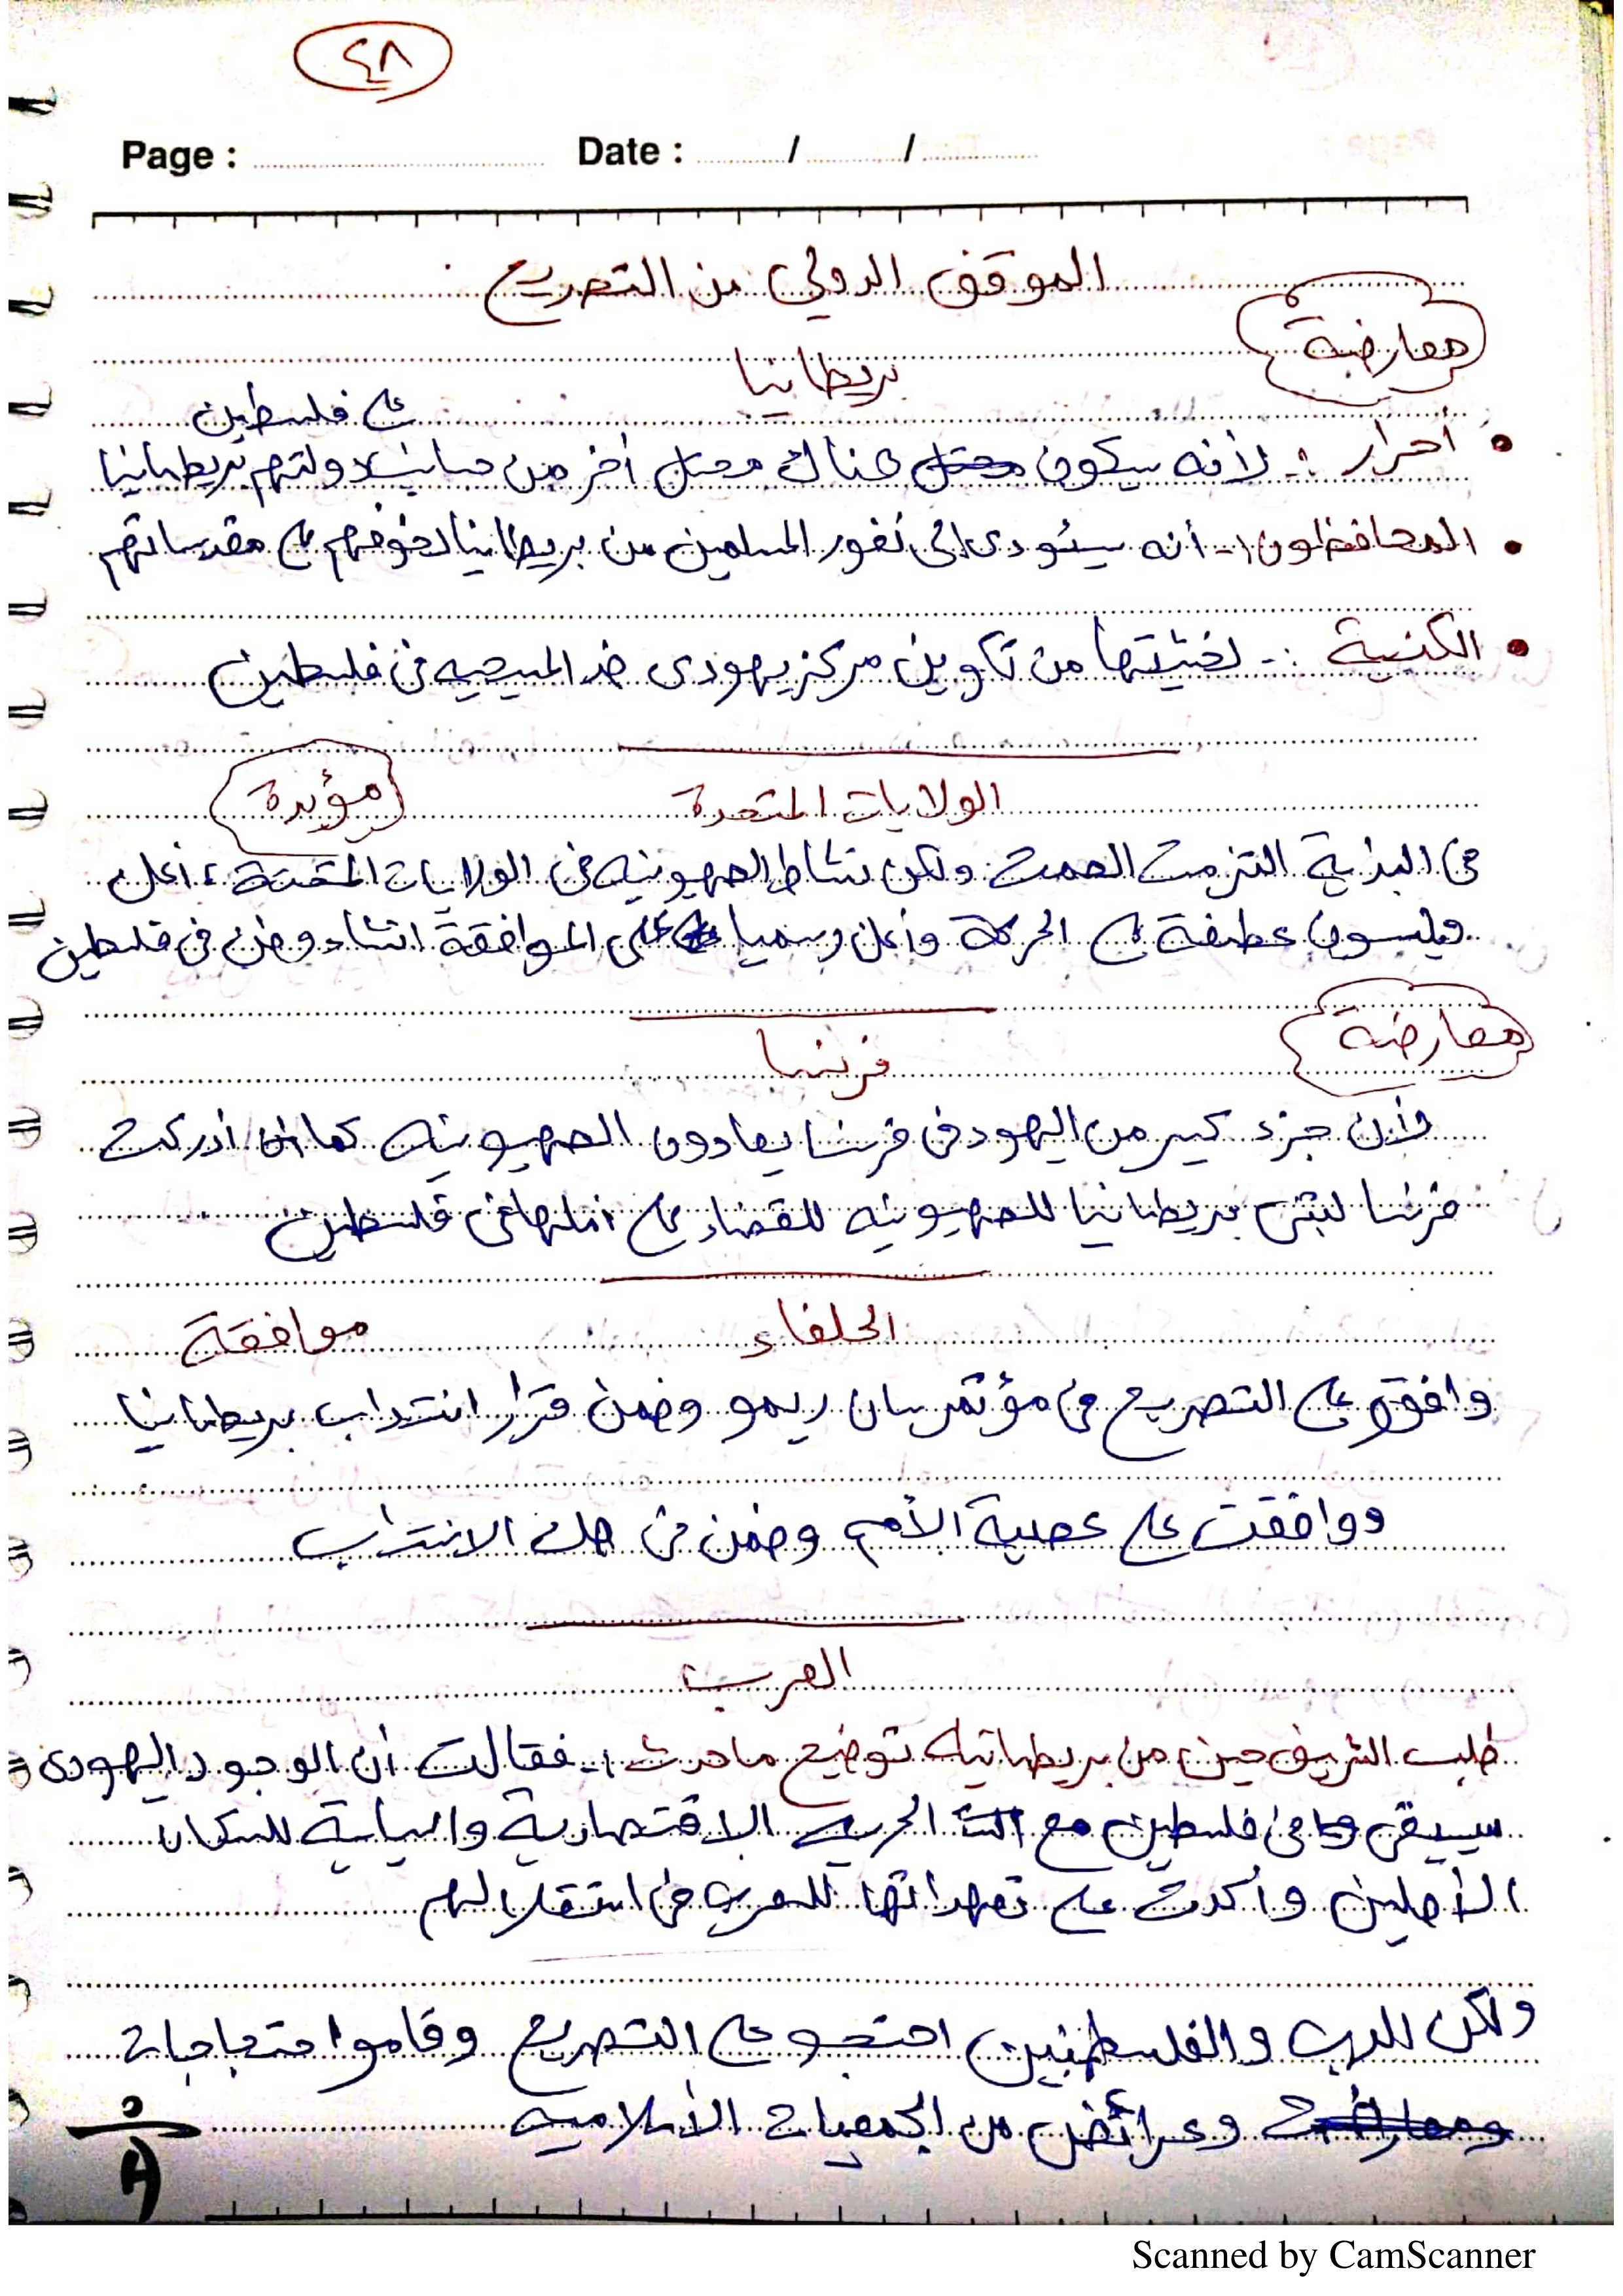 ٤٨
Page : Date : / /
الموقف الدولي من التصريح
معارضة
بريطانيا
على فلسطين
• أحرار :- لأنه سيكون هناك محتل أخر من جانب دولتهم بريطانيا
• المحافظون :- أنه سيئودى الى نفور المسلمين من بريطانيا لخوفهم على مقدساتهم
• الكنسية :- لخشيتها من تكوين مركز يهودى ضد المسيحيه فى فلسطين
الولايات المتحدة مؤيدة
فى البداية التزمت الصمت ولكن نشاط الصهيونيه فى الولايات المتحدة ، أعلن
ويلسون عطفة على الحركة وأعلن رسميا على الموافقة انشاء وطن فى فلسطين
معارضة
فرنسا
وأن جزء كبير من اليهود فى فرنسا يعادون الصهيونيه كما أن أدركت
فرنسا لتبنى بريطانيا للصهيونيه للقضاء على املها فى فلسطين
الحلفاء موافقة
وافقو على التصريح فى مؤتمر سان ريمو وضمن قرار انتداب بريطانيا
ووافقت على عصبة الأمم وضمن فى صك الانتداب
العرب
طلب الشريف حسين من بريطانيه توضيح ماحدث :- فقالت أن الوجود اليهودى
سيبقى فى فلسطين مع الحريه الاقتصادية والسياسية للسكان
الأصلين وأكدت على تعهداتها للعرب فى استقلالهم
ولكن للعرب والفلسطنيين احتجو على التصريح وقاموا حتجاجات
وعرائض من الجمعيات الأسلاميه
Scanned by CamScanner